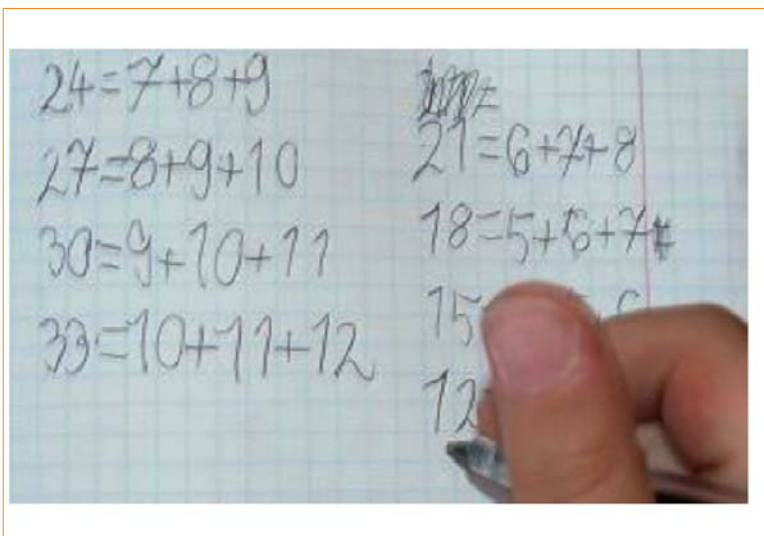 24=7+8+9
27=8+9+10
30=9+10+11
33=10+11+12
21=6+7+8
18=5+6+7
15
12